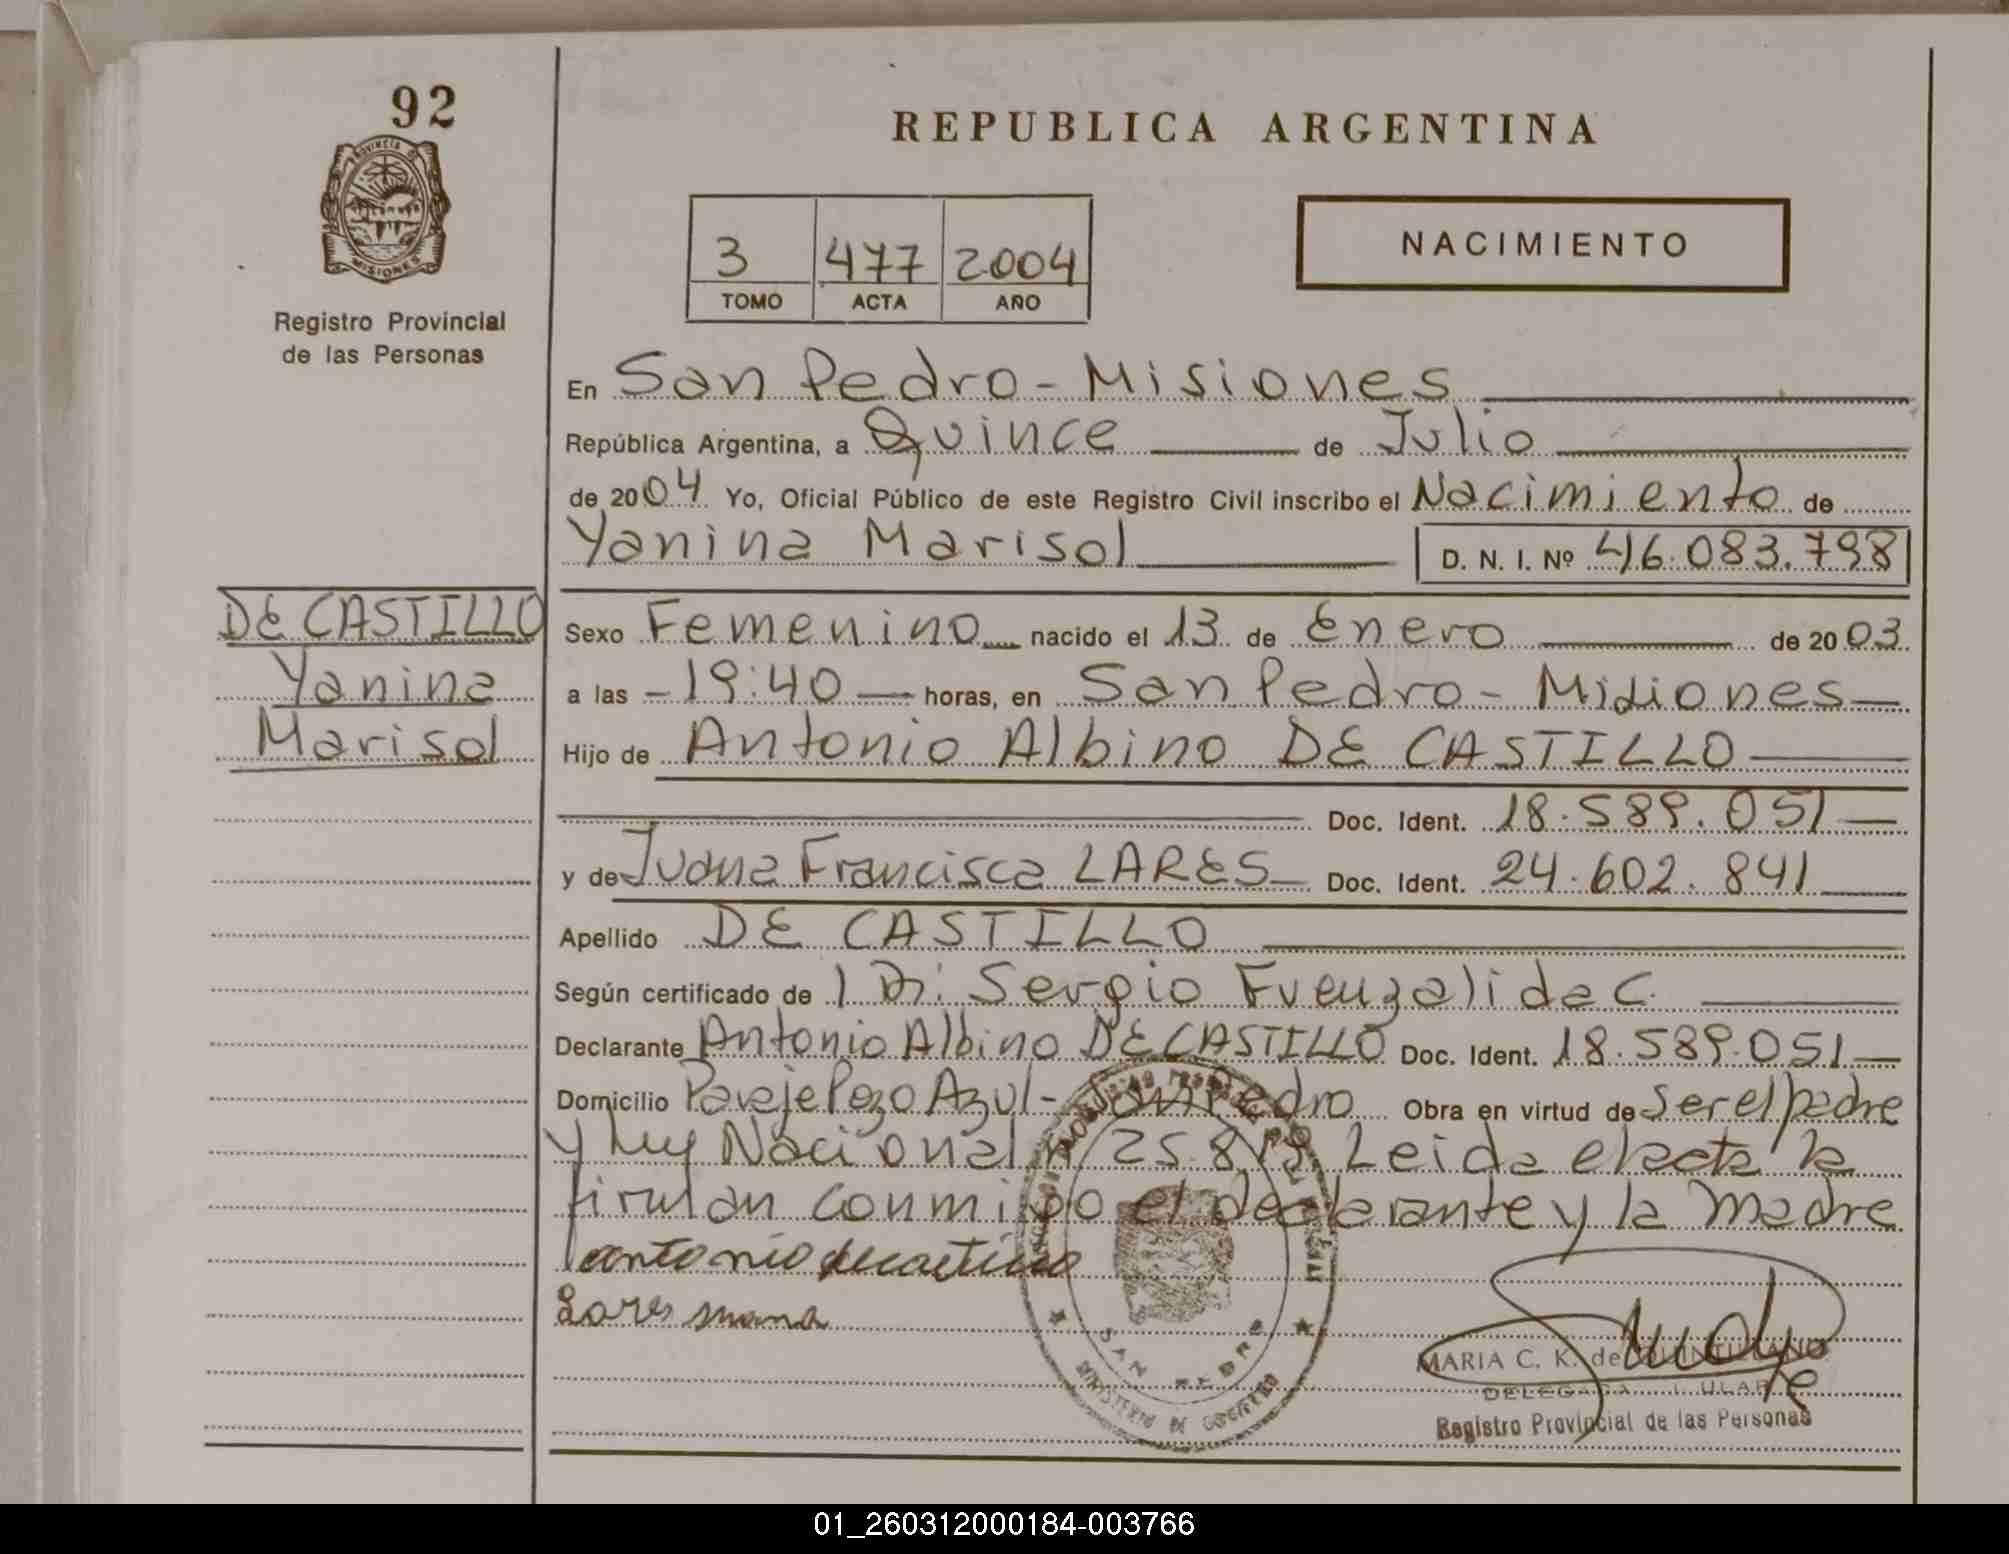 92
PROVINCIA DE
MISIONES
Registro Provincial
de las Personas
DE CASTILLO
Yanina
Marisol
REPUBLICA ARGENTINA
3 477 2004
TOMO ACTA AÑO
NACIMIENTO
En San Pedro - Misiones
República Argentina, a Quince de Julio
de 2004 Yo, Oficial Público de este Registro Civil inscribo el Nacimiento de
Yanina Marisol D. N. I. Nº 46.083.798
Sexo Femenino nacido el 13 de Enero de 2003
a las - 19:40 - horas, en San Pedro - Misiones
Hijo de Antonio Albino DE CASTILLO
Doc. Ident. 18.589.051
y de Juana Francisca LARES Doc. Ident. 24.602.841
Apellido DE CASTILLO
Según certificado de Dr. Sergio Fuenzalida C.
Declarante Antonio Albino DE CASTILLO Doc. Ident. 18.589.051
Domicilio Paraje Pozo Azul - San Pedro Obra en virtud de Ser el padre
y Ley Nacional n° 25.819 Leida el acta la
firman conmigo el declarante y la madre
antonio decastillo
Lares
SAN PEDRO
MINISTERIO DE GOBIERNO
MARIA C. K. de QUINTILLANO
DELEGADA TITULAR
Registro Provincial de las Personas
01_260312000184-003766